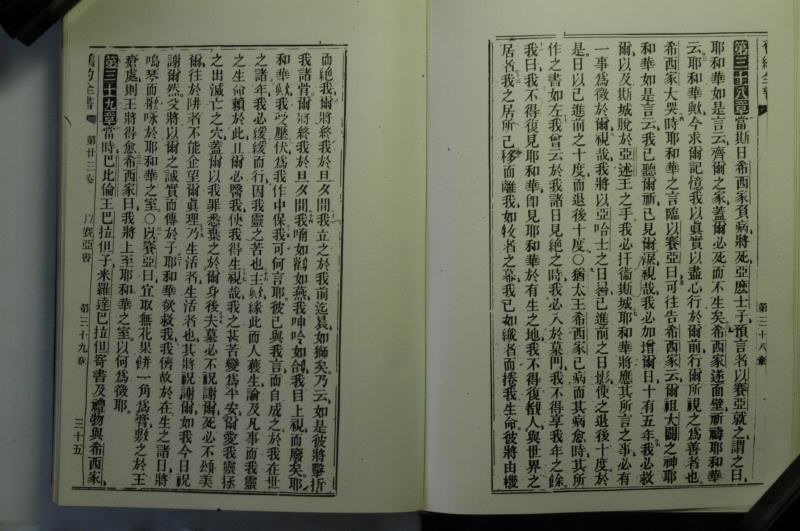 第三十八章當斯日希西家負病將死亞麽士子預言者以賽亞就之謂之曰
耶和華如是言云齊爾之家蓋爾必死而不生矣希西家遂面壁祈禱耶和華
云耶和華歟今求爾記憶我以眞實以盡心行於爾前行爾所視之爲善者也
希西家大哭時耶和華之言臨以賽亞曰可往告希西家云爾祖大闢之神耶
和華如是言云我已聽爾祈已見爾淚視哉我必加增爾日十有五年我必救
爾以及斯城脫於亞述王之手我必扞衞斯城耶和華將應其所言之事必有
一事爲徵於爾視哉我將以亞哈士之日晷已進前之日影使之退後十度於
是日以已進前之十度而退後十度〇猶太王希西家已病而其病愈時其所
作之書如左我曾云於我諸日見絕之時我必入於墓門我不得享我年之餘
我曰我不得復見耶和華卽見耶和華於有生之地我不得復觀人與世界之
居者我之居所已移而離我如牧者之幕我已如織者而捲我生命彼將由機
第三十八章
而絕我爾將終我於旦夕間我立之於我前迄晨如獅矣乃云如是彼將擊折
我諸骨爾將終我於旦夕間我喃如鶴如燕我呻吟如鴿我目上視而廢矣耶
和華歟我受壓伏爲我作中保我可何言耶彼已與我言而自成之於我在世
之諸年我必緩緩而行因我靈之苦也主歟緣此而人穫生論及凡事而我靈
之生命賴於此且爾必醫我使我得生視哉我之甚苦變爲平安爾愛我靈拯
之出滅亡之穴蓋爾以我罪悉棄之於爾身後夫墓必不祝謝爾死必不頌美
爾往於阱者不能企望爾眞理乃生活者生活者也其將祝謝爾如我今日祝
謝爾然父將以爾之誠實而傳於子耶和華欲救我我儕故於在生之諸日將
鳴琴而歌咏於耶和華之室〇以賽亞曰宜取無花果餅一角爲膏敷之於王
瘡處則王將得愈希西家曰我將上至耶和華之室以何爲徵耶
第三十九章當時巴比倫王巴拉但子米羅達巴拉但寄書及禮物與希西家
舊約全書 第廿三卷 賽亞書 第三十九章 三十五